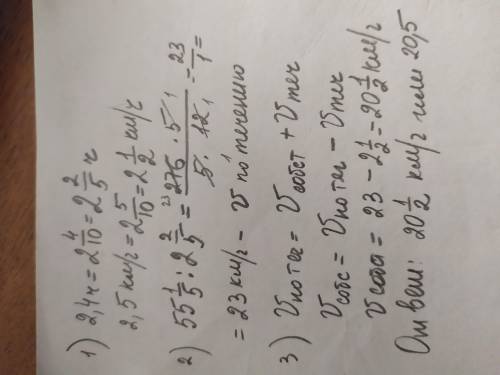 1) 2,4ч = 2 4/10 = 2 2/5 ч
2,5 км/ч = 2 5/10 = 2 1/2 км/ч
2) 55 1/5 : 2 2/5 = 23 276 · 5 1 / 5 · 12 1 = 23/1 =
= 23 км/ч – V по течению
3) Vпо теч = Vсобст + Vтеч
Vсобс = Vпо теч – Vтеч
Vсобст = 23 – 2 1/2 = 20 1/2 км/ч
Ответ: 20 1/2 км/ч или 20,5